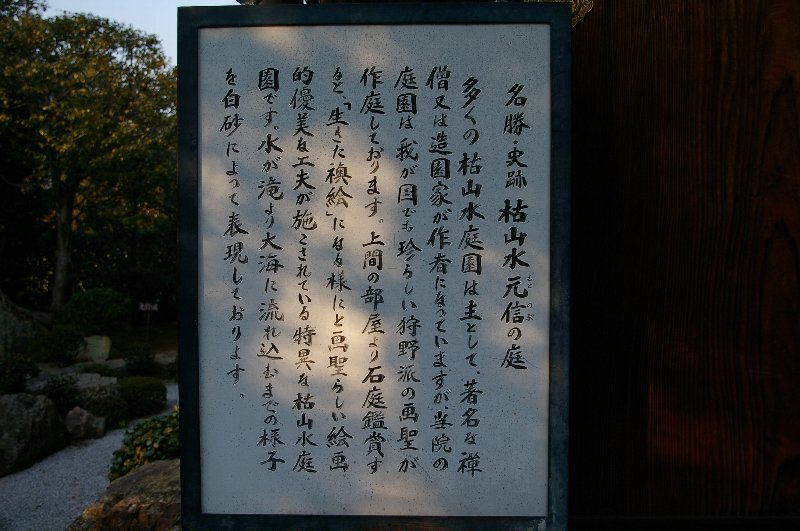 名勝・史跡 枯山水 元信の庭
もとのぶ
多くの枯山水庭園は主として、著名な禅
僧又は造園家が作者になっていますが、当院の
庭園は我が国でも珍らしい狩野派の画聖が
作庭しております。上間の部屋より石庭鑑賞す
ると、「生きた襖絵」になる様にと画聖らしい絵画
的優美な工夫が施こされている特異な枯山水庭
園です。水が滝より大海に流れ込むまでの様子
を白砂によって表現しております。